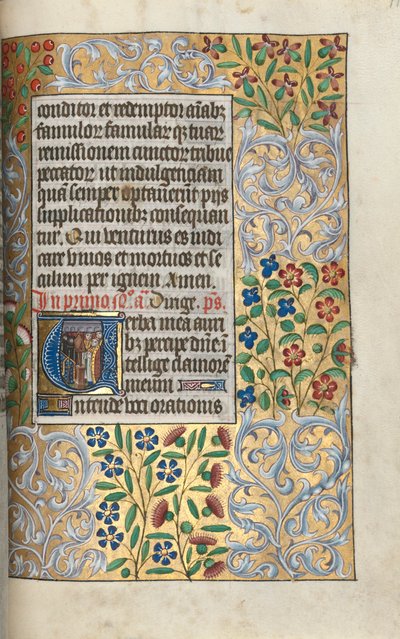 conditor et redemptor aiabꝫ
famulor famular qꝫ tuar
remissionem cunctor tribue
peccator ut indulgenciam
quā semper optauerūt pijs
supplicationibꝫ consequan
tur. Qui venturus es iudi
care viuos et mortuos et se
culum per ignem Amen.
In primo no. a. Dirige. ps.
Verba mea auri
bꝫ percipe dn̄e i
tellige clamorē
meum
Intende voci orationis